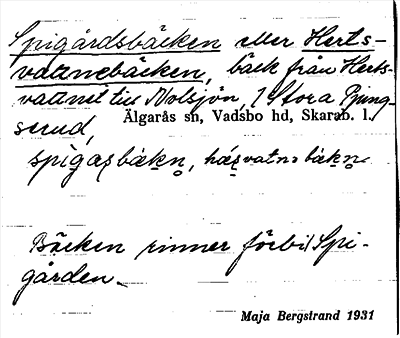 Spigårdsbäcken eller Herts-
vattnebäcken, bäck från Herts-
vattnet till Nolsjön, 1 Stora Bjung-
serud,
Älgarås sn, Vadsbo hd, Skarab. l.
spigasbäkn, hásvatnsbäkn
Bäcken rinner förbi Spi-
gården.
Maja Bergstrand 1931